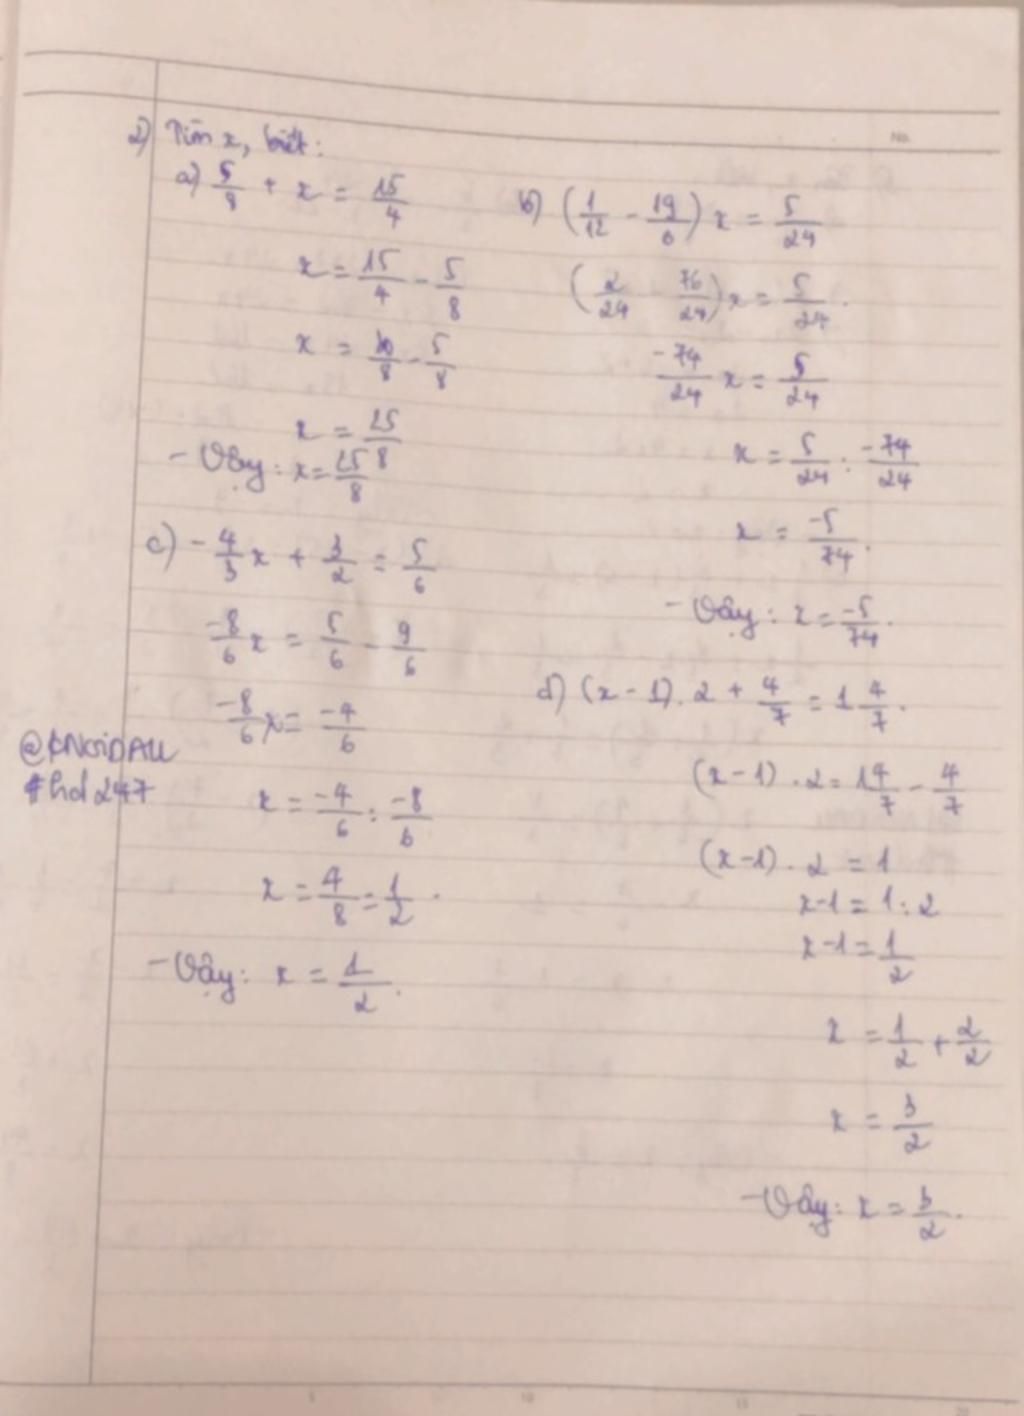 2) Tìm x, biết:
a) 5/8 + x = 15/4
x = 15/4 - 5/8
x = 30/8 - 5/8
x = 25/8
- Vậy: x = 25/8
b) (1/12 - 19/6) x = 5/24
(2/24 - 76/24) x = 5/24.
-74/24 x = 5/24
x = 5/24 : -74/24
x = -5/74.
- Vậy: x = -5/74.
c) - 4/3 x + 3/2 = 5/6
-8/6 x = 5/6 - 9/6
-8/6 x = -4/6
x = -4/6 : -8/6
x = 4/8 = 1/2.
- Vậy: x = 1/2.
d) (x - 1). 2 + 4/7 = 1 4/7.
(x - 1) . 2 = 1 4/7 - 4/7
(x - 1) . 2 = 1
x - 1 = 1 : 2
x - 1 = 1/2
x = 1/2 + 2/2
x = 3/2
- Vậy: x = 3/2.
No.
#hd247
5 10 15 20